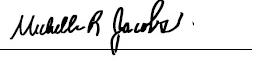 Michelle R Jacobs